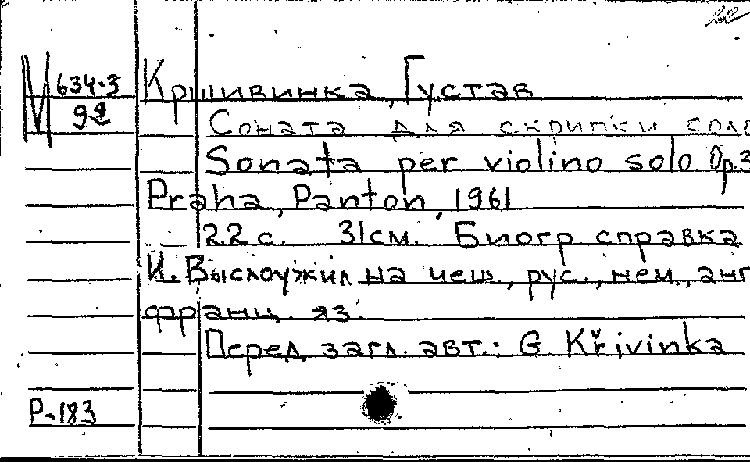 М 634-3 Кршивинка, Густав
92
Соната для скрипки соло
Sonata per violino solo Op.3
Praha, Panton, 1961
22 с. 31 см. Биогр справка
И. Выслоужил на чеш., рус., нем., анг
франц. яз.
Перед загл. авт.: G Křivinka
Р-183